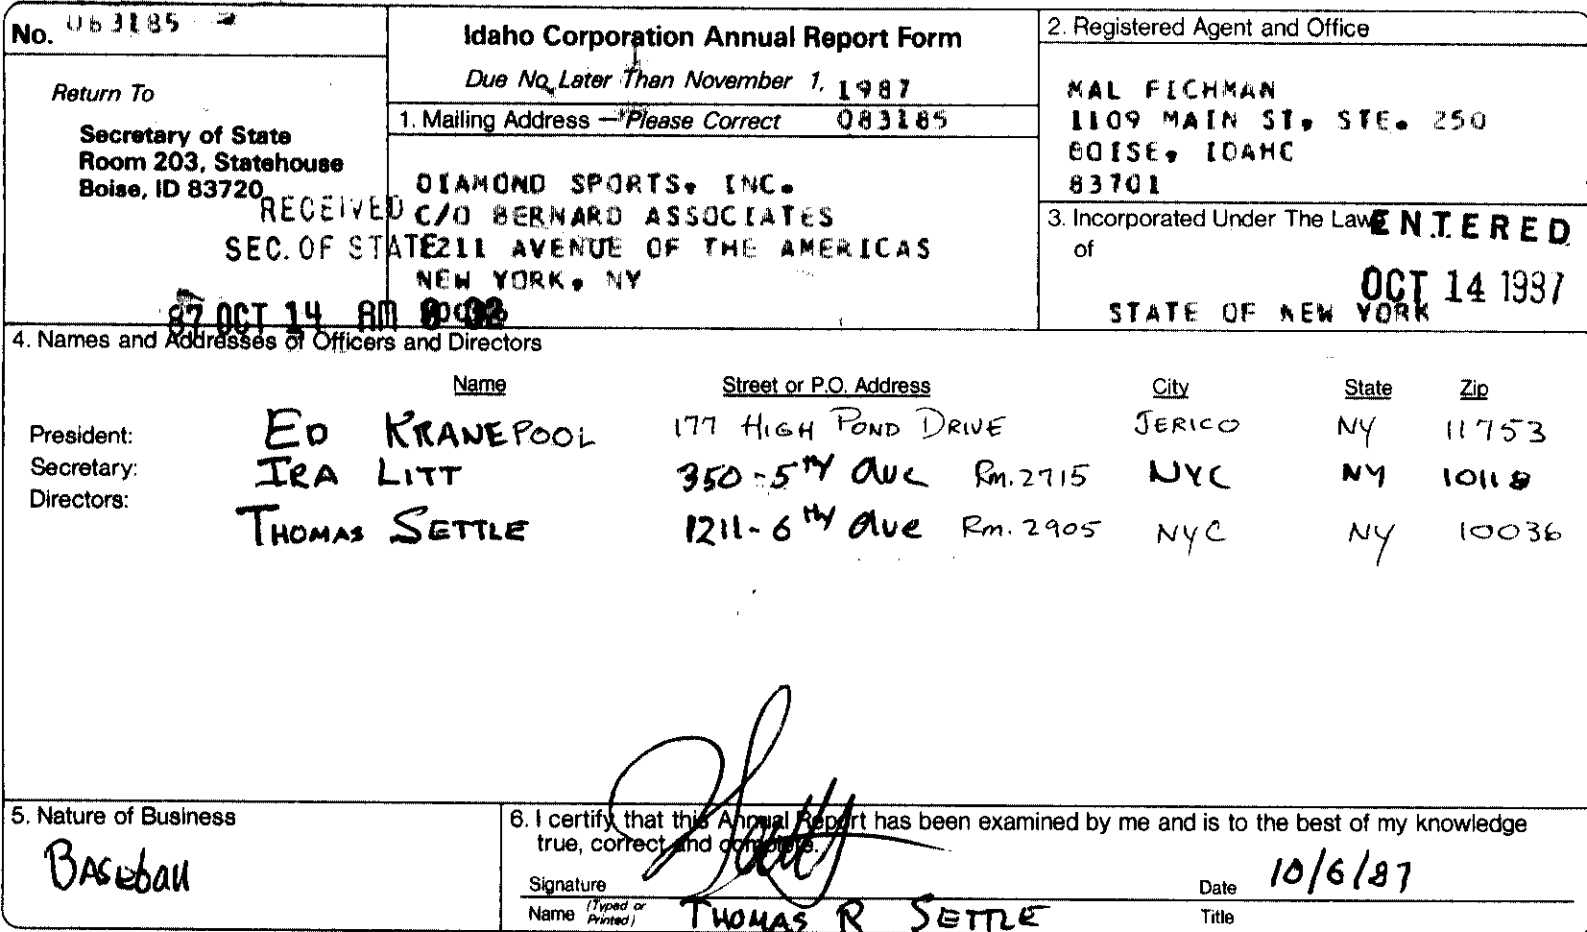 No. 083185
Idaho Corporation Annual Report Form
Due No Later Than November 1, 1987
Return To
Secretary of State
Room 203, Statehouse
Boise, ID 83720
RECEIVED
SEC. OF STATE
87 OCT 14 AM
1. Mailing Address — Please Correct 083185
DIAMOND SPORTS, INC.
C/O BERNARD ASSOCIATES
1211 AVENUE OF THE AMERICAS
NEW YORK, NY
2. Registered Agent and Office
MAL FICHMAN
1109 MAIN ST, STE. 250
BOISE, IDAHO
83701
3. Incorporated Under The Laws
of
ENTERED
OCT 14 1987
STATE OF NEW YORK
4. Names and Addresses of Officers and Directors
Name Street or P.O. Address City State Zip
President: ED KRANEPOOL 177 HIGH POND DRIVE JERICO NY 11753
Secretary: IRA LITT 350-5TH AVE Rm. 2715 NYC NY 10118
Directors:
THOMAS SETTLE 1211-6TH AVE Rm. 2905 NYC NY 10036
5. Nature of Business
BASEball
6. I certify that this Annual Report has been examined by me and is to the best of my knowledge
true, correct and complete.
Signature Date 10/6/87
Name (Typed or Printed) THOMAS R SETTLE Title